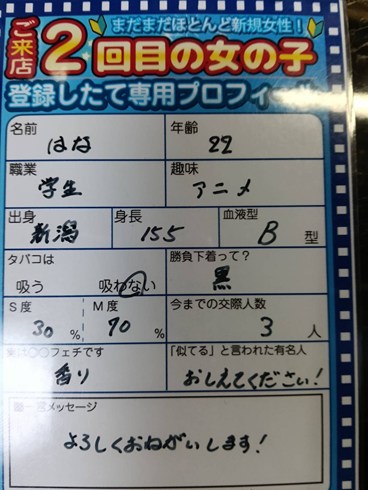 まだまだほとんど新規女性！
ご来店2回目の女の子
登録したて専用プロフィール
名前 はな
年齢 22
職業 学生
趣味 アニメ
出身 新潟
身長 155
血液型 B 型
タバコは 吸う 吸わない
勝負下着って? 黒
S度 30 %
M度 70 %
今までの交際人数 3 人
実は〇〇フェチです 香り
「似てる」と言われた有名人 おしえてください!
メッセージ
よろしくおねがいします!